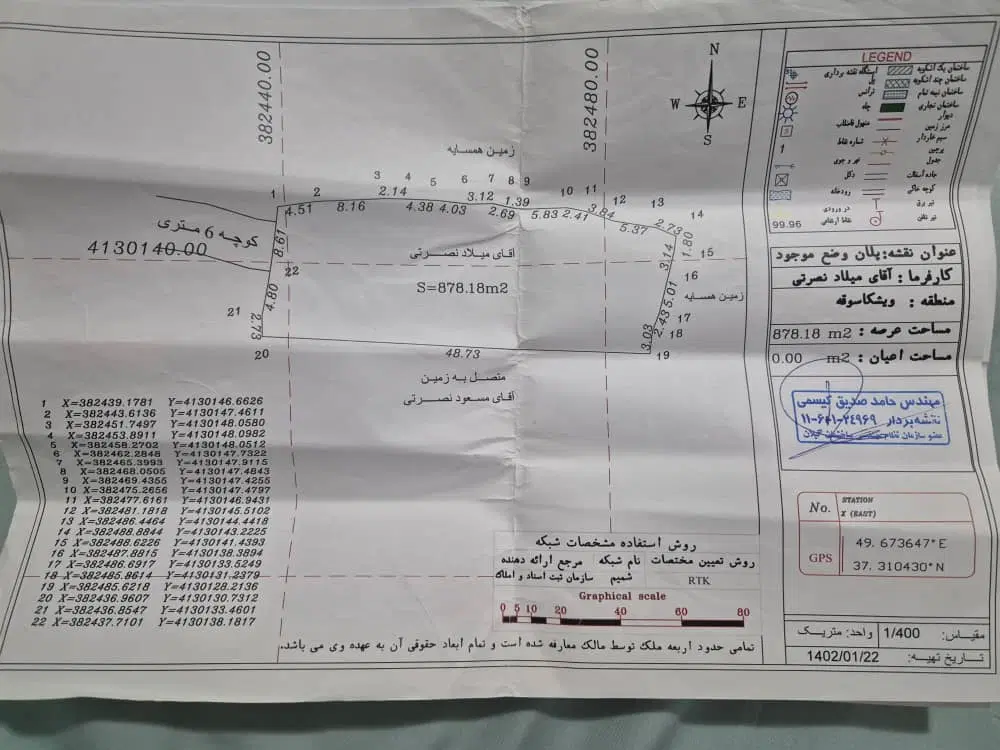 382440.00
382480.00
N
W E
S
زمین همسایه
1 2 3 4 5 6 7 8 9 10 11 12 13 14
4.51 8.16 2.14 4.38 4.03 3.12 2.69 1.39 5.83 2.41 3.84 5.37 2.73 1.80
کوچه 6 متری
4130140.00
8.61
آقای میلاد نصرتی
3.14
15
22
S=878.18m2
16
4.80
5.01
زمین همسایه
21
2.73
2.43
17
3.03
18
20
48.73
19
متصل به زمین
آقای مسعود نصرتی
1 X=382439.1781 Y=4130146.6626
2 X=382443.6136 Y=4130147.4611
3 X=382451.7497 Y=4130148.0580
4 X=382453.8911 Y=4130148.0982
5 X=382458.2702 Y=4130148.0512
6 X=382462.2848 Y=4130147.7322
7 X=382465.3993 Y=4130147.9115
8 X=382468.0505 Y=4130147.4843
9 X=382469.4355 Y=4130147.4255
10 X=382475.2656 Y=4130147.4797
11 X=382477.6161 Y=4130146.9431
12 X=382481.1818 Y=4130145.5102
13 X=382486.4464 Y=4130144.4418
14 X=382488.8844 Y=4130143.2225
15 X=382488.6226 Y=4130141.4393
16 X=382487.8815 Y=4130138.3894
17 X=382486.6917 Y=4130133.5249
18 X=382485.8614 Y=4130131.2379
19 X=382485.6218 Y=4130128.2136
20 X=382436.9607 Y=4130130.7312
21 X=382436.8547 Y=4130133.4601
22 X=382437.7101 Y=4130138.1817
روش استفاده مشخصات شبکه
روش تعیین مختصات نام شبکه مرجع ارائه دهنده
RTK شمیم سازمان ثبت اسناد و املاک
Graphical scale
0 5 10 20 40 60 80
تمامی حدود اربعه ملک توسط مالک معارفه شده است و تمام ابعاد حقوقی آن به عهده وی می باشد.
LEGEND
ساختمان یک اشکوبه
ایستگاه نقشه برداری
ساختمان چند اشکوبه
پل
ساختمان نیمه تمام
ترانس
ساختمان تجاری
چاه
دیوار
مرز زمین
منهول فاضلاب
سیم خاردار
شماره نقاط
1
پرچین
جدول
نهر و جوی
جاده آسفالت
دکل
کوچه خاکی
رودخانه
تیر برق
در ورودی
تیر تلفن
نقاط ارتفاعی
99.96
عنوان نقشه: پلان وضع موجود
کارفرما : آقای میلاد نصرتی
منطقه : ویشکاسوقه
مساحت عرصه : 878.18 m2
مساحت اعیان : 0.00 m2
مهندس حامد صدیق کیسمی
نقشه بردار ۳۴۹۶۹-۶۰۱-۱۱
عضو سازمان نظام مهندسی ساختمان گیلان
No.
STATION
X (EAST)
GPS
49.673647°E
37.310430°N
مقیاس: 1/400
واحد: متریک
تاریخ تهیه: 1402/01/22